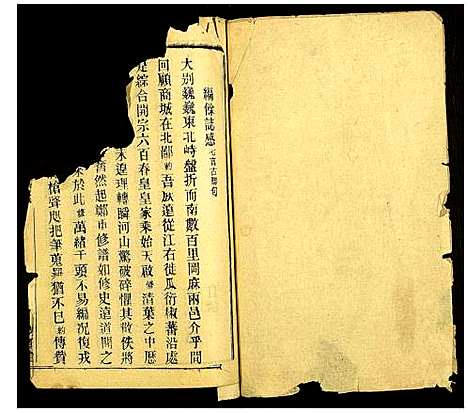 編餘誌感 七言古體句
大別巍巍東北峙盤折而南數百里岡麻兩邑介乎間
回顧商城在北鄙 吾族遠從江右徙瓜衍椒蕃沿處
是綜合開宗六百春皇皇家乘始天啟 清葉之中歷
水遑理轉瞬河山驚破碎懼其散佚將
奮然起鄭 修譜如修史遠道問之
來於此 萬緒千頭不易編況復戎
槍聲咫把筆蒐羅猶不已 傳費